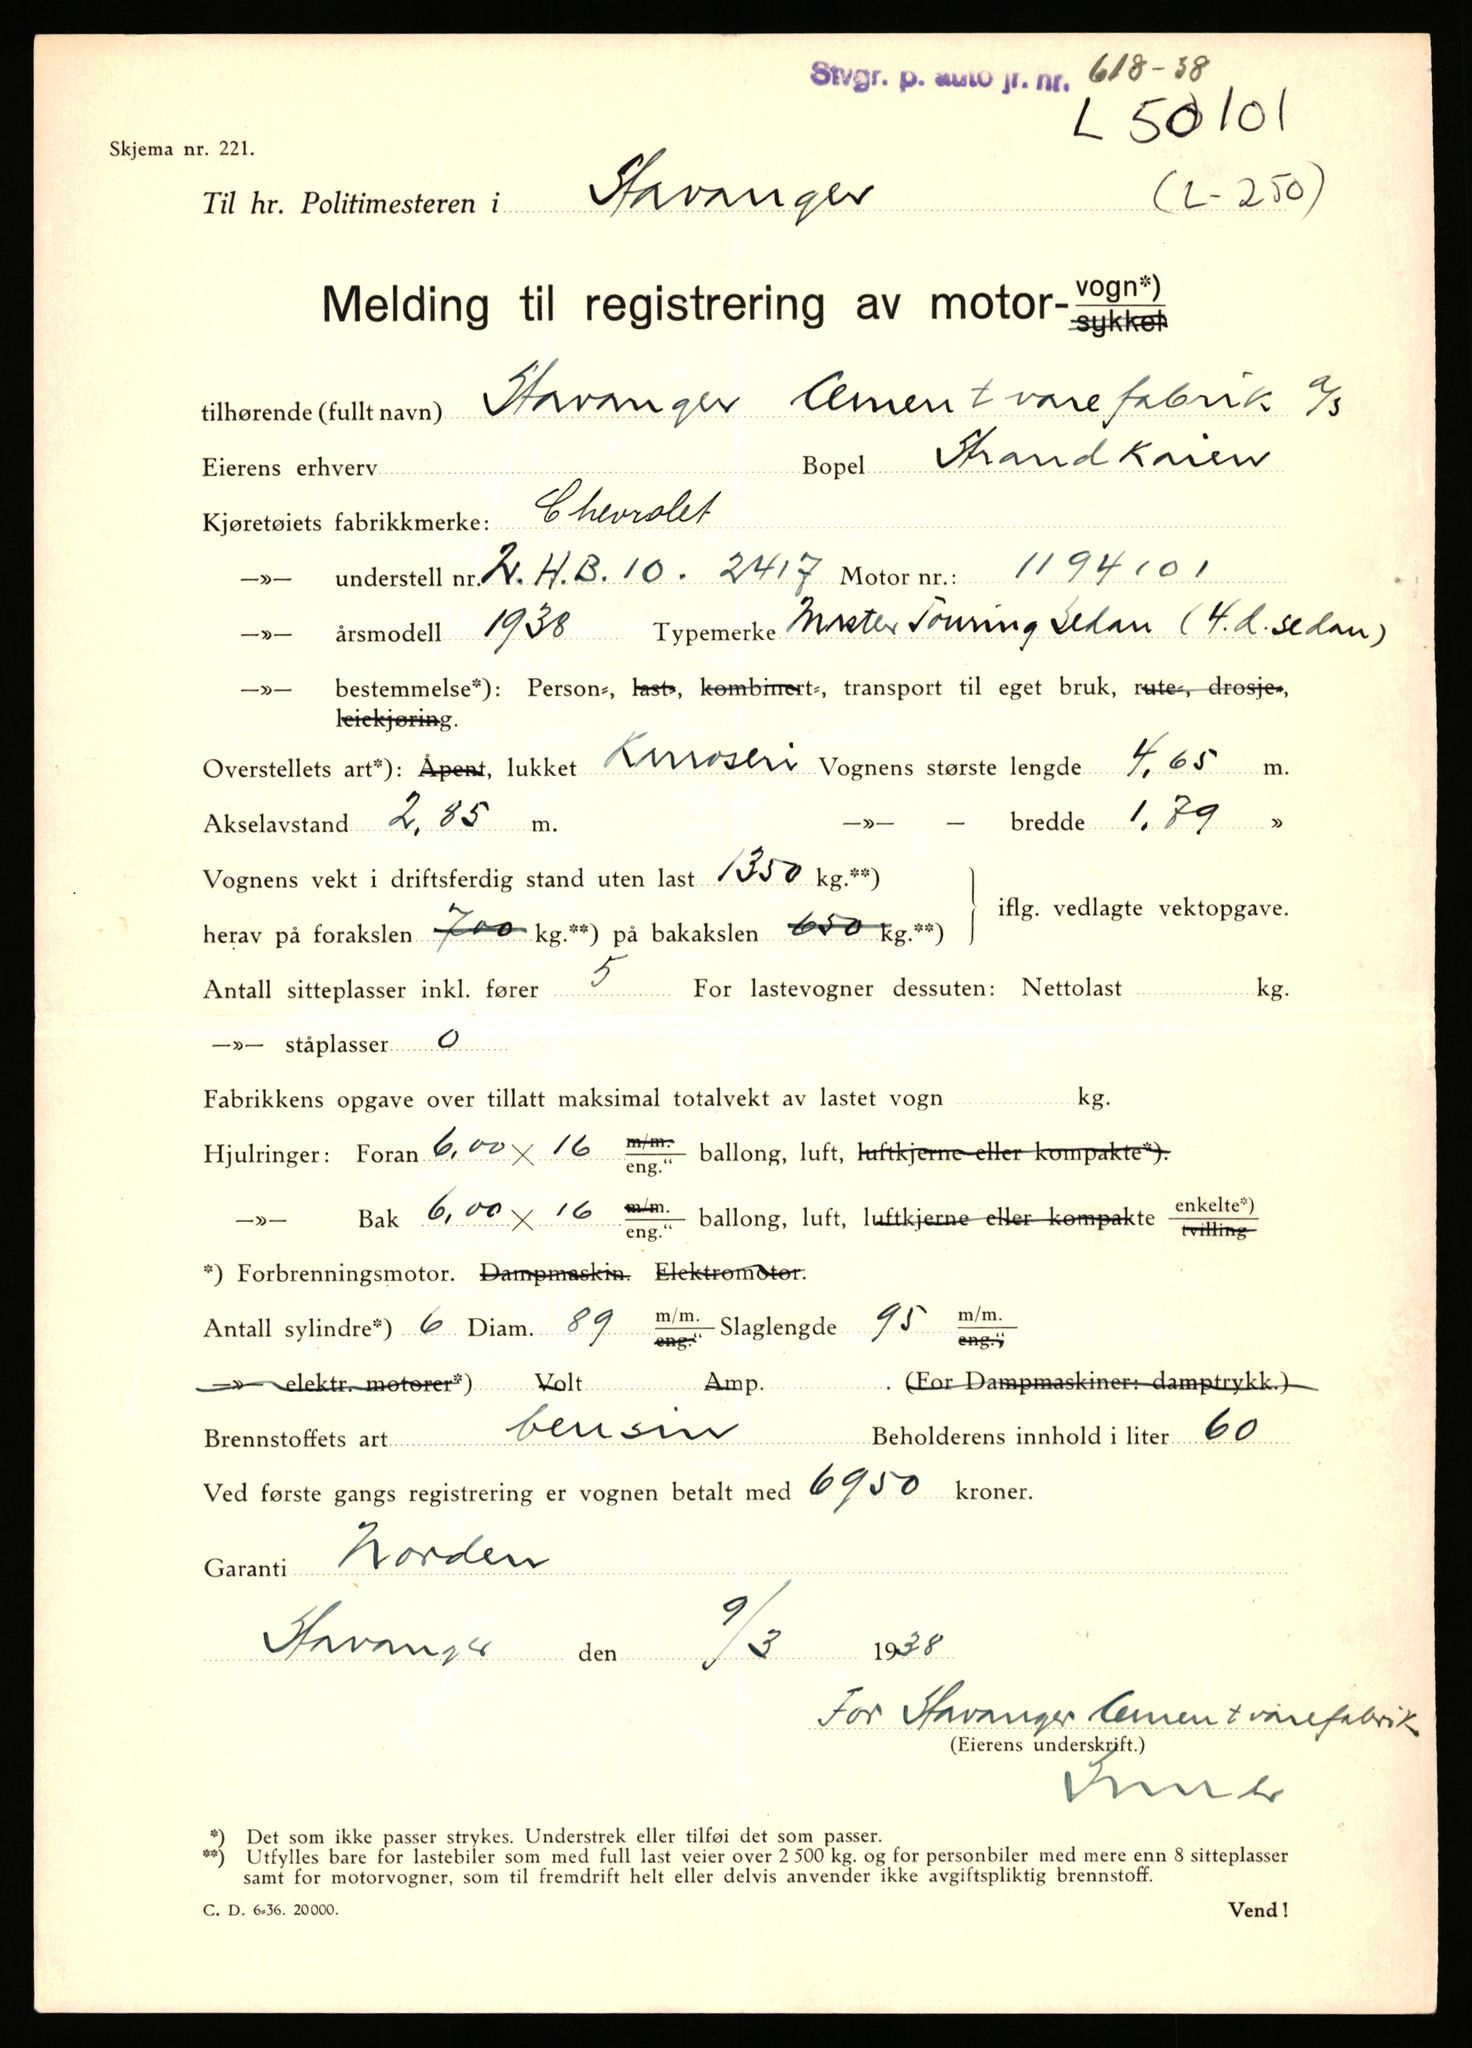 Stvgr. p. auto jr. nr. 618-38
L 50101
Skjema nr. 221.
Til hr. Politimesteren i Stavanger (L-250)
Melding til registrering av motor-vogn*)
sykkel
tilhørende (fullt navn) Stavanger Cementvarefabrik A/S
Eierens erhverv Bopel Strandkaien
Kjøretøiets fabrikkmerke: Chevrolet
—»— understell nr. 2.H.B.10. 2417 Motor nr.: 1194101
—»— årsmodell 1938 Typemerke Master Touring Sedan (4.d. sedan)
—»— bestemmelse*): Person-, last-, kombinert-, transport til eget bruk, rute-, drosje-,
leiekjøring.
Overstellets art*): Åpent, lukket Karroseri Vognens største lengde 4,65 m.
Akselavstand 2,85 m. —»— — bredde 1.79 »
Vognens vekt i driftsferdig stand uten last 1350 kg.**)
herav på forakslen 700 kg.**) på bakakslen 650 kg.**) iflg. vedlagte vektopgave.
Antall sitteplasser inkl. fører 5 For lastevogner dessuten: Nettolast kg.
—»— ståplasser 0
Fabrikkens opgave over tillatt maksimal totalvekt av lastet vogn kg.
Hjulringer: Foran 6,00 × 16 m/m. eng." ballong, luft, luftkjerne eller kompakte*).
—»— Bak 6,00 × 16 m/m. eng." ballong, luft, luftkjerne eller kompakte enkelte*) tvilling
*) Forbrenningsmotor. Dampmaskin. Elektromotor.
Antall sylindre*) 6 Diam. 89 m/m. eng." Slaglengde 95 m/m. eng."
—»— elektr. motorer*) Volt Amp. . (For Dampmaskiner: damptrykk.)
Brennstoffets art bensin Beholderens innhold i liter 60
Ved første gangs registrering er vognen betalt med 6950 kroner.
Garanti Norden
Stavanger den 9/3 1938
For Stavanger Cementvarefabrik
(Eierens underskrift.)
*) Det som ikke passer strykes. Understrek eller tilføi det som passer.
**) Utfylles bare for lastebiler som med full last veier over 2 500 kg. og for personbiler med mere enn 8 sitteplasser
samt for motorvogner, som til fremdrift helt eller delvis anvender ikke avgiftspliktig brennstoff.
C. D. 6-36. 20000. Vend!